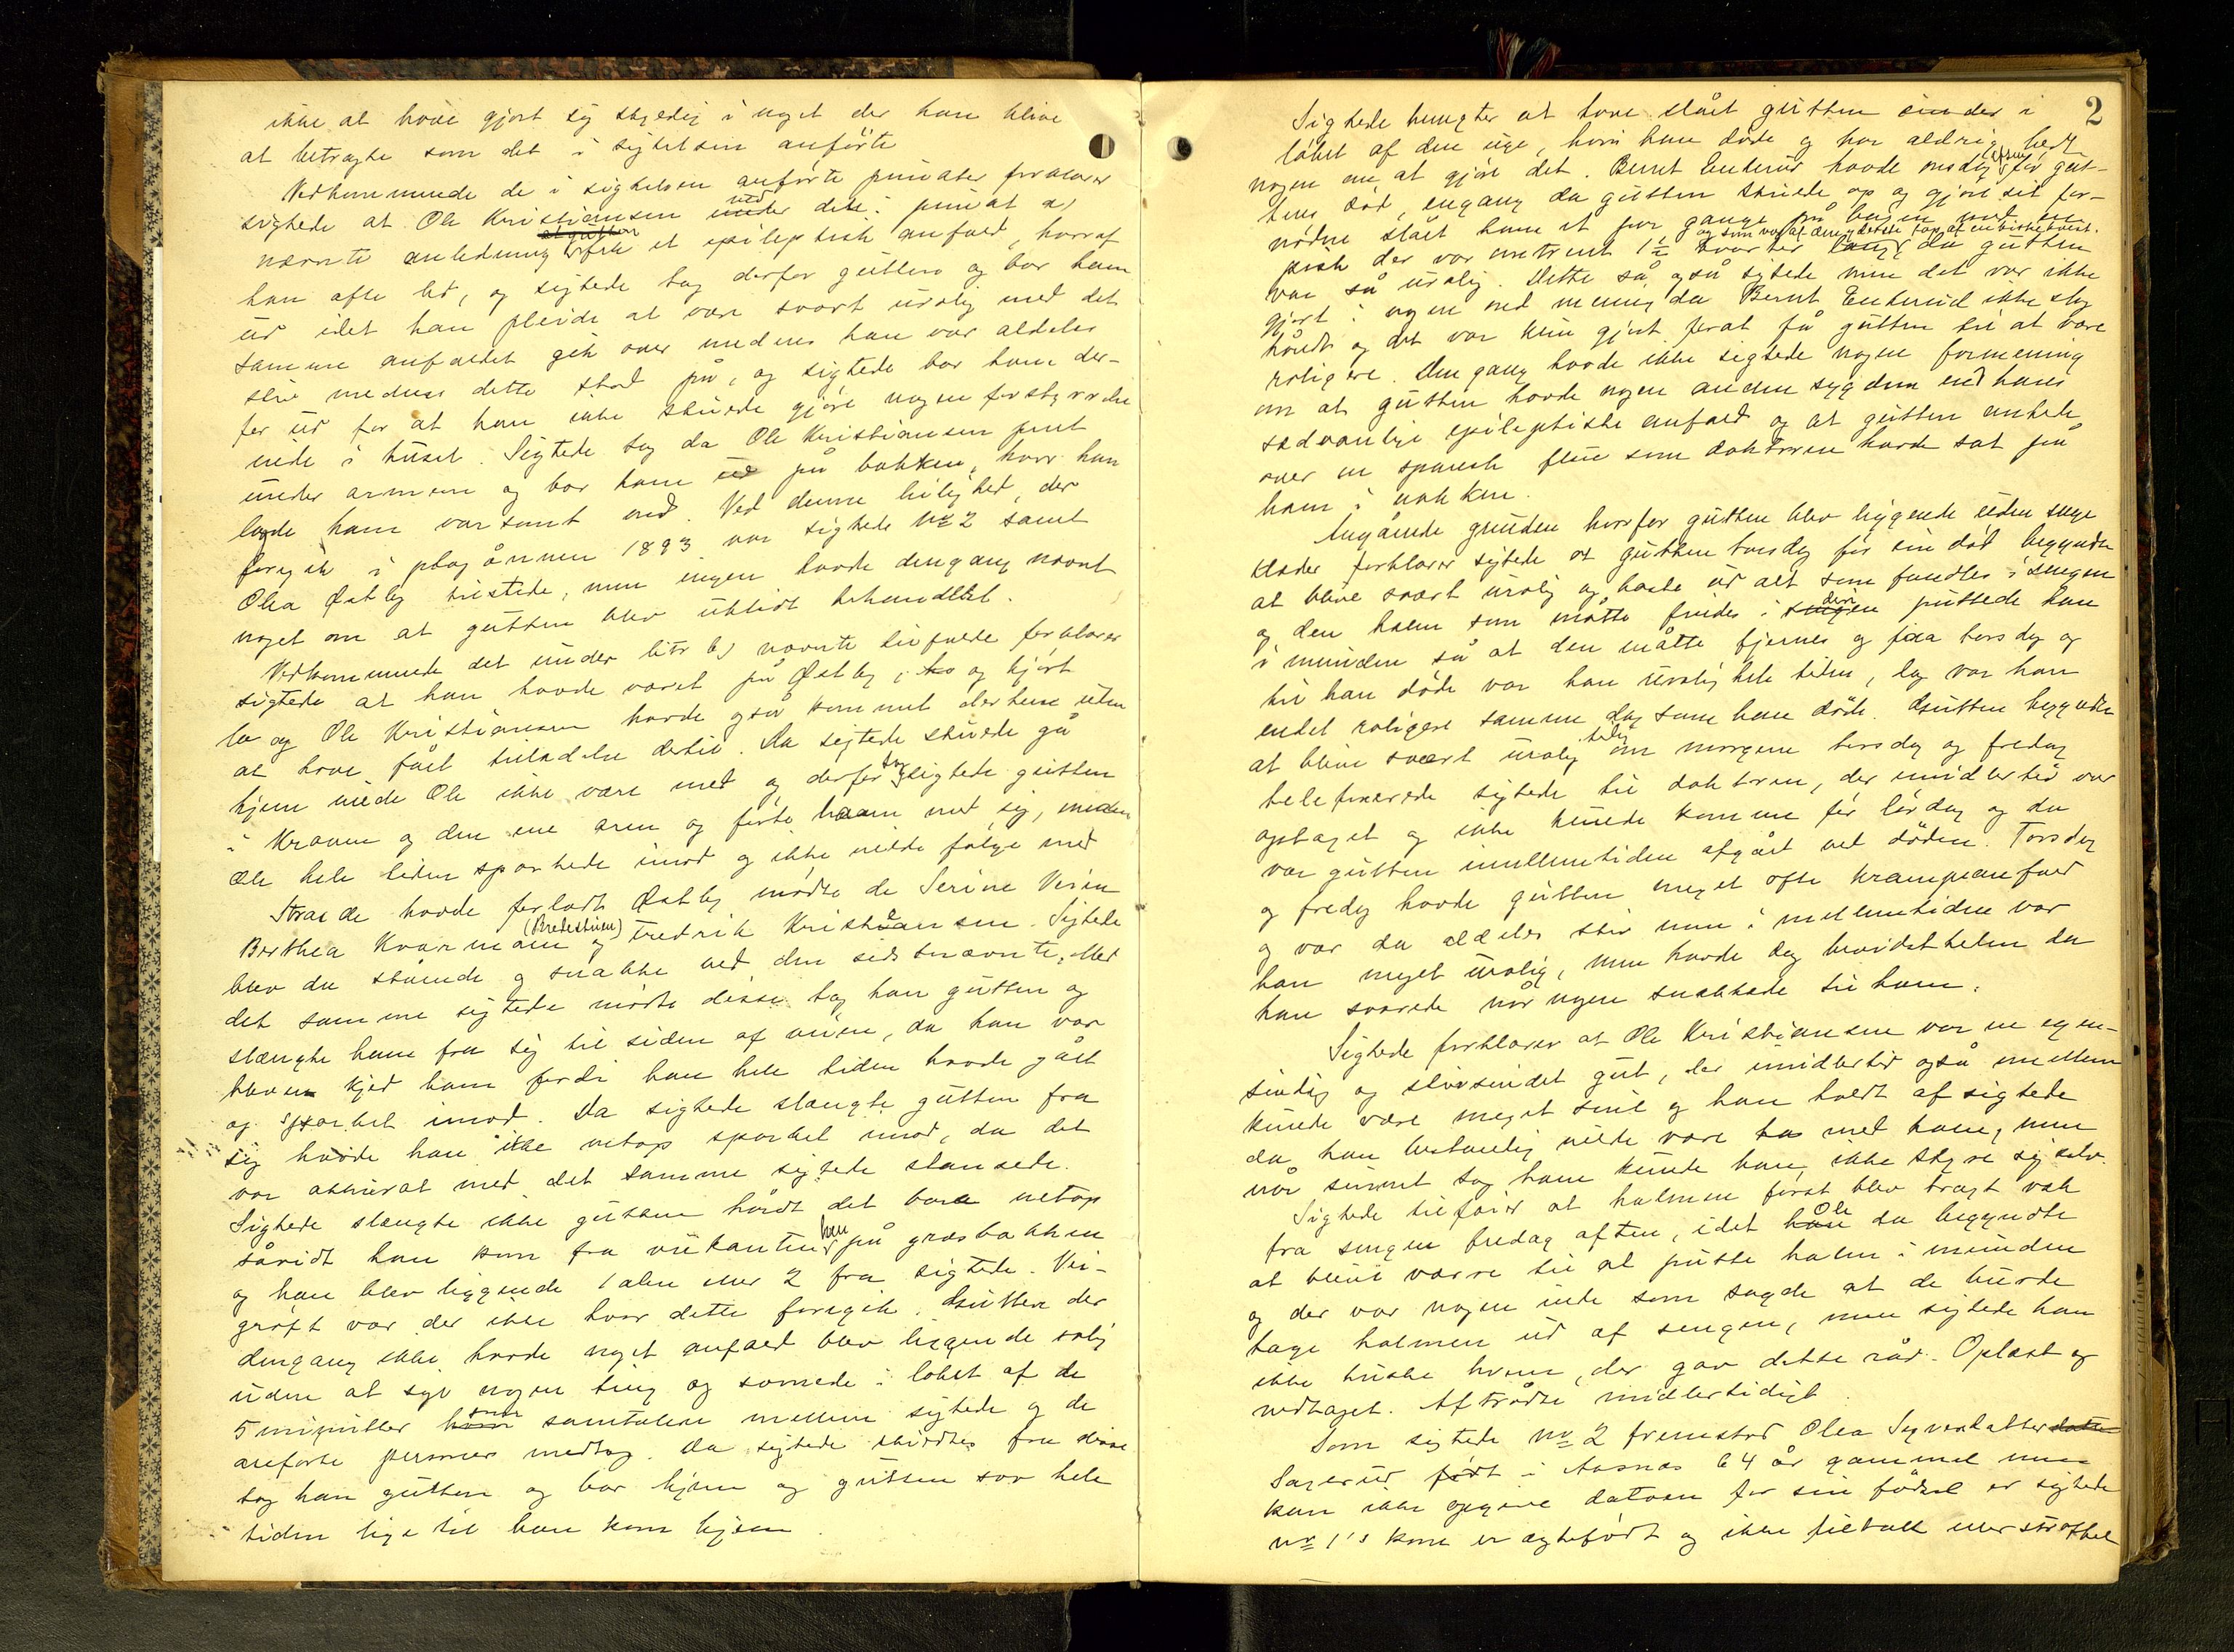 ikke at have gjort sig skyldig i noget der kan blive
at betragte som det i sigtelsen anførte
Vedkommende de i sigtelsen anførte punkter forklarer
sigtede at Ole Kristiansen ved den i punkt a)
nævnte anledning fik et epileptisk anfald, hvoraf
han ofte led, og sigtede tog derfor gutten og bar ham
ud idet han pleide at være svært urolig med det
samme anfaldet gik over medens han var aldeles
stiv medens dette stod på, og sigtede bar ham der-
for ud for at han ikke skulde gjøre nogen forstyrrelse
inde i huset. Sigtede tog da Ole Kristiansen pent
under armene og bar ham ud på bakken, hvor han
lagde ham varsomt ned. Ved denne leilighed, der
foregik i plogånnen 1893 var sigtede No 2 samt
Olea Østby tilstede, men ingen havde dengang nævnt
noget om at gutten blev ublidt behandlet.
Vedkommende det under litr b) nævnte tilfælde forklarer
sigtede at han havde været på Østby, og kjørt
lo og Ole Kristiansen havde også kommet derhen uden
at have fået tilladelse dertil. Da sigtede skulde gå
hjem vilde Ole ikke være med og derfor tog sigtede gutten
i kraven og den ene arm og førte ham med sig, medens
Ole hele tiden sparkede imod og ikke vilde følge med
Strax de havde forladt Østby mødte de Serine Veien
Berthea Kvarnmoen (Bredestuen) og Fredrik Kristiansen. Sigtede
blev da stående og snakke ved den sidstnævnte. Med
det samme sigtede mødte disse tog han gutten og
slængte ham fra sig til siden af veien, da han var
bleven kjed ham fordi han hele tiden havde gået
og sparket imod. Da sigtede slængte gutten fra
sig havde han ikke netop sparket imod, da det
var akkurat med det samme sigtede stansede.
Sigtede slængte ikke gutten hårdt det bare netop
såvidt han kom fra veikanten hen på græsbakken
og han blev liggende 1 alen eller 2 fra sigtede. Vei-
grøft var der ikke hvor dette foregik. Gutten der
dengang ikke havde noget anfald blev liggende rolig
uden at sige nogen ting og sovnede i løbet af de
5 minutter som samtalen mellem sigtede og de
anførte personer medtog. Da sigtede skiltes fra disse
tog han gutten og bar hjem og gutten sov hele
tiden lige til han kom hjem
2
Sigtede benegter at have slået gutten i
løbet af den uge, hvori han døde og har aldrig bedt
nogen om at gjøre det. Bernt Enkerud havde onsdag aften før gut-
tens død, engang da gutten skulde op og gjøre sit for-
nødne slået ham et par gange på bagen med en
pisk der var omtrent 1½ kvarter lang og som var af den yderste top af en birkekvist. da gutten
var så urolig. Dette så også sigtede men det var ikke
gjort i nogen ond mening da Bernt Enkerud ikke slog
hårdt og det var kun gjort forat få gutten til at være
roligere. Den gang havde ikke sigtede nogen formening
om at gutten havde nogen anden sygdom end hans
sædvanlige epileptiske anfald og at gutten ankede
over en spansk flue som doktoren havde sat på
ham i nakken.
Angående grunden hvorfor gutten blev liggende uden senge
klæder forklarer sigtede at gutten torsdag før sin død begyndte
at blive svært urolig og kaste ud alt som fandtes i sengen
og den halm som måtte findes i den puttede han
i munden så at den måtte fjernes og fra torsdag og
til han døde var han urolig hele tiden, dog var han
endel roligere samme dag som han døde. Gutten begyndte
at blive svært urolig tidlig om morgenen torsdag og fredag
telefonerede sigtede til doktoren, der imidlertid var
optaget og ikke kunde komme før lørdag og da
var gutten imellemtiden afgået ved døden. Torsdag
og fredag havde gutten meget ofte krampeanfald
og var da aldeles stiv men i mellemtiden var
han meget urolig, men havde dog bevidstheden da
han svarede når nogen snakkede til ham.
Sigtede forklarer at Ole Kristiansen var en egen-
sindig og slivsindet gut, der imidlertid også imellem
kunde være meget snil og han holdt af sigtede
da han bestandig vilde være med ham, men
når sinnet tog ham kunde han ikke styre sig selv.
Sigtede tilføier at halmen først blev tragt væk
fra sengen fredag aften, idet Ole da begyndte
at blive værre til at putte halm i munden
og der var nogen inde som sagde at de burde
tage halmen ud af sengen, men sigtede kan
ikke huske hvem der gav dette råd. Oplæst og
vedtaget. Aftrådte midlertidigt.
Som sigtede No 2 fremstod Olea Syversdatter
Sagerud født i Aasnæs 64 år gammel men
kan ikke opgive datoen for sin fødsel er sigtede
No 1's kone er ægtefødt og ikke tiltalt eller straffet